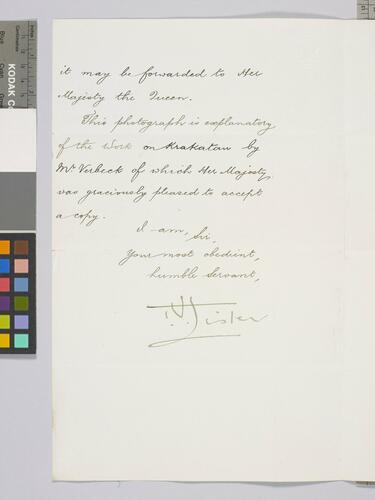 it may be forwarded to Her
Majesty the Queen.
This photograph is explanatory
of the Work on Krakatau by
Mr Verbeck of which Her Majesty
was graciously pleased to accept
a copy.
I am, Sir,
Your most obedient,
humble Servant,
KODAK